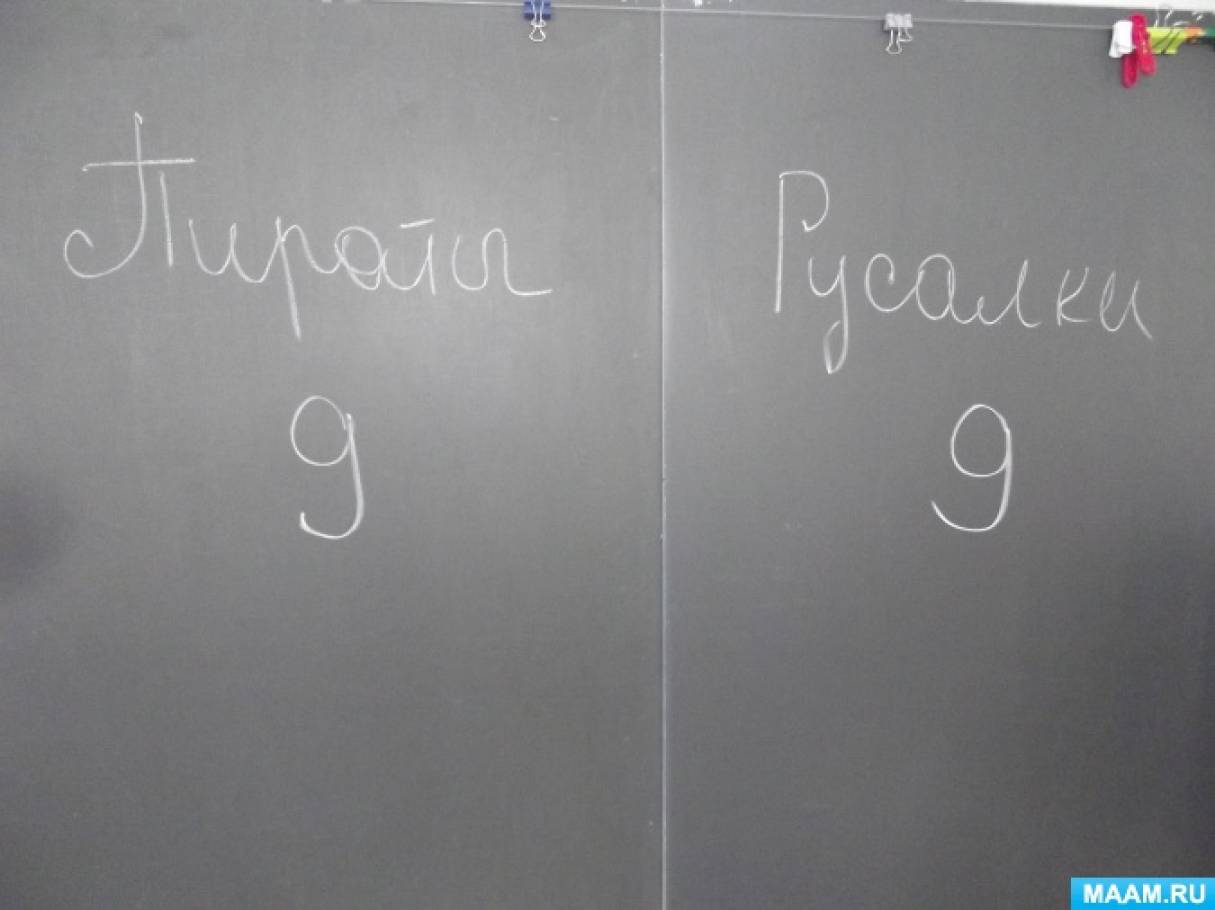 Пираты
9
Русалки
9
MAAM.RU